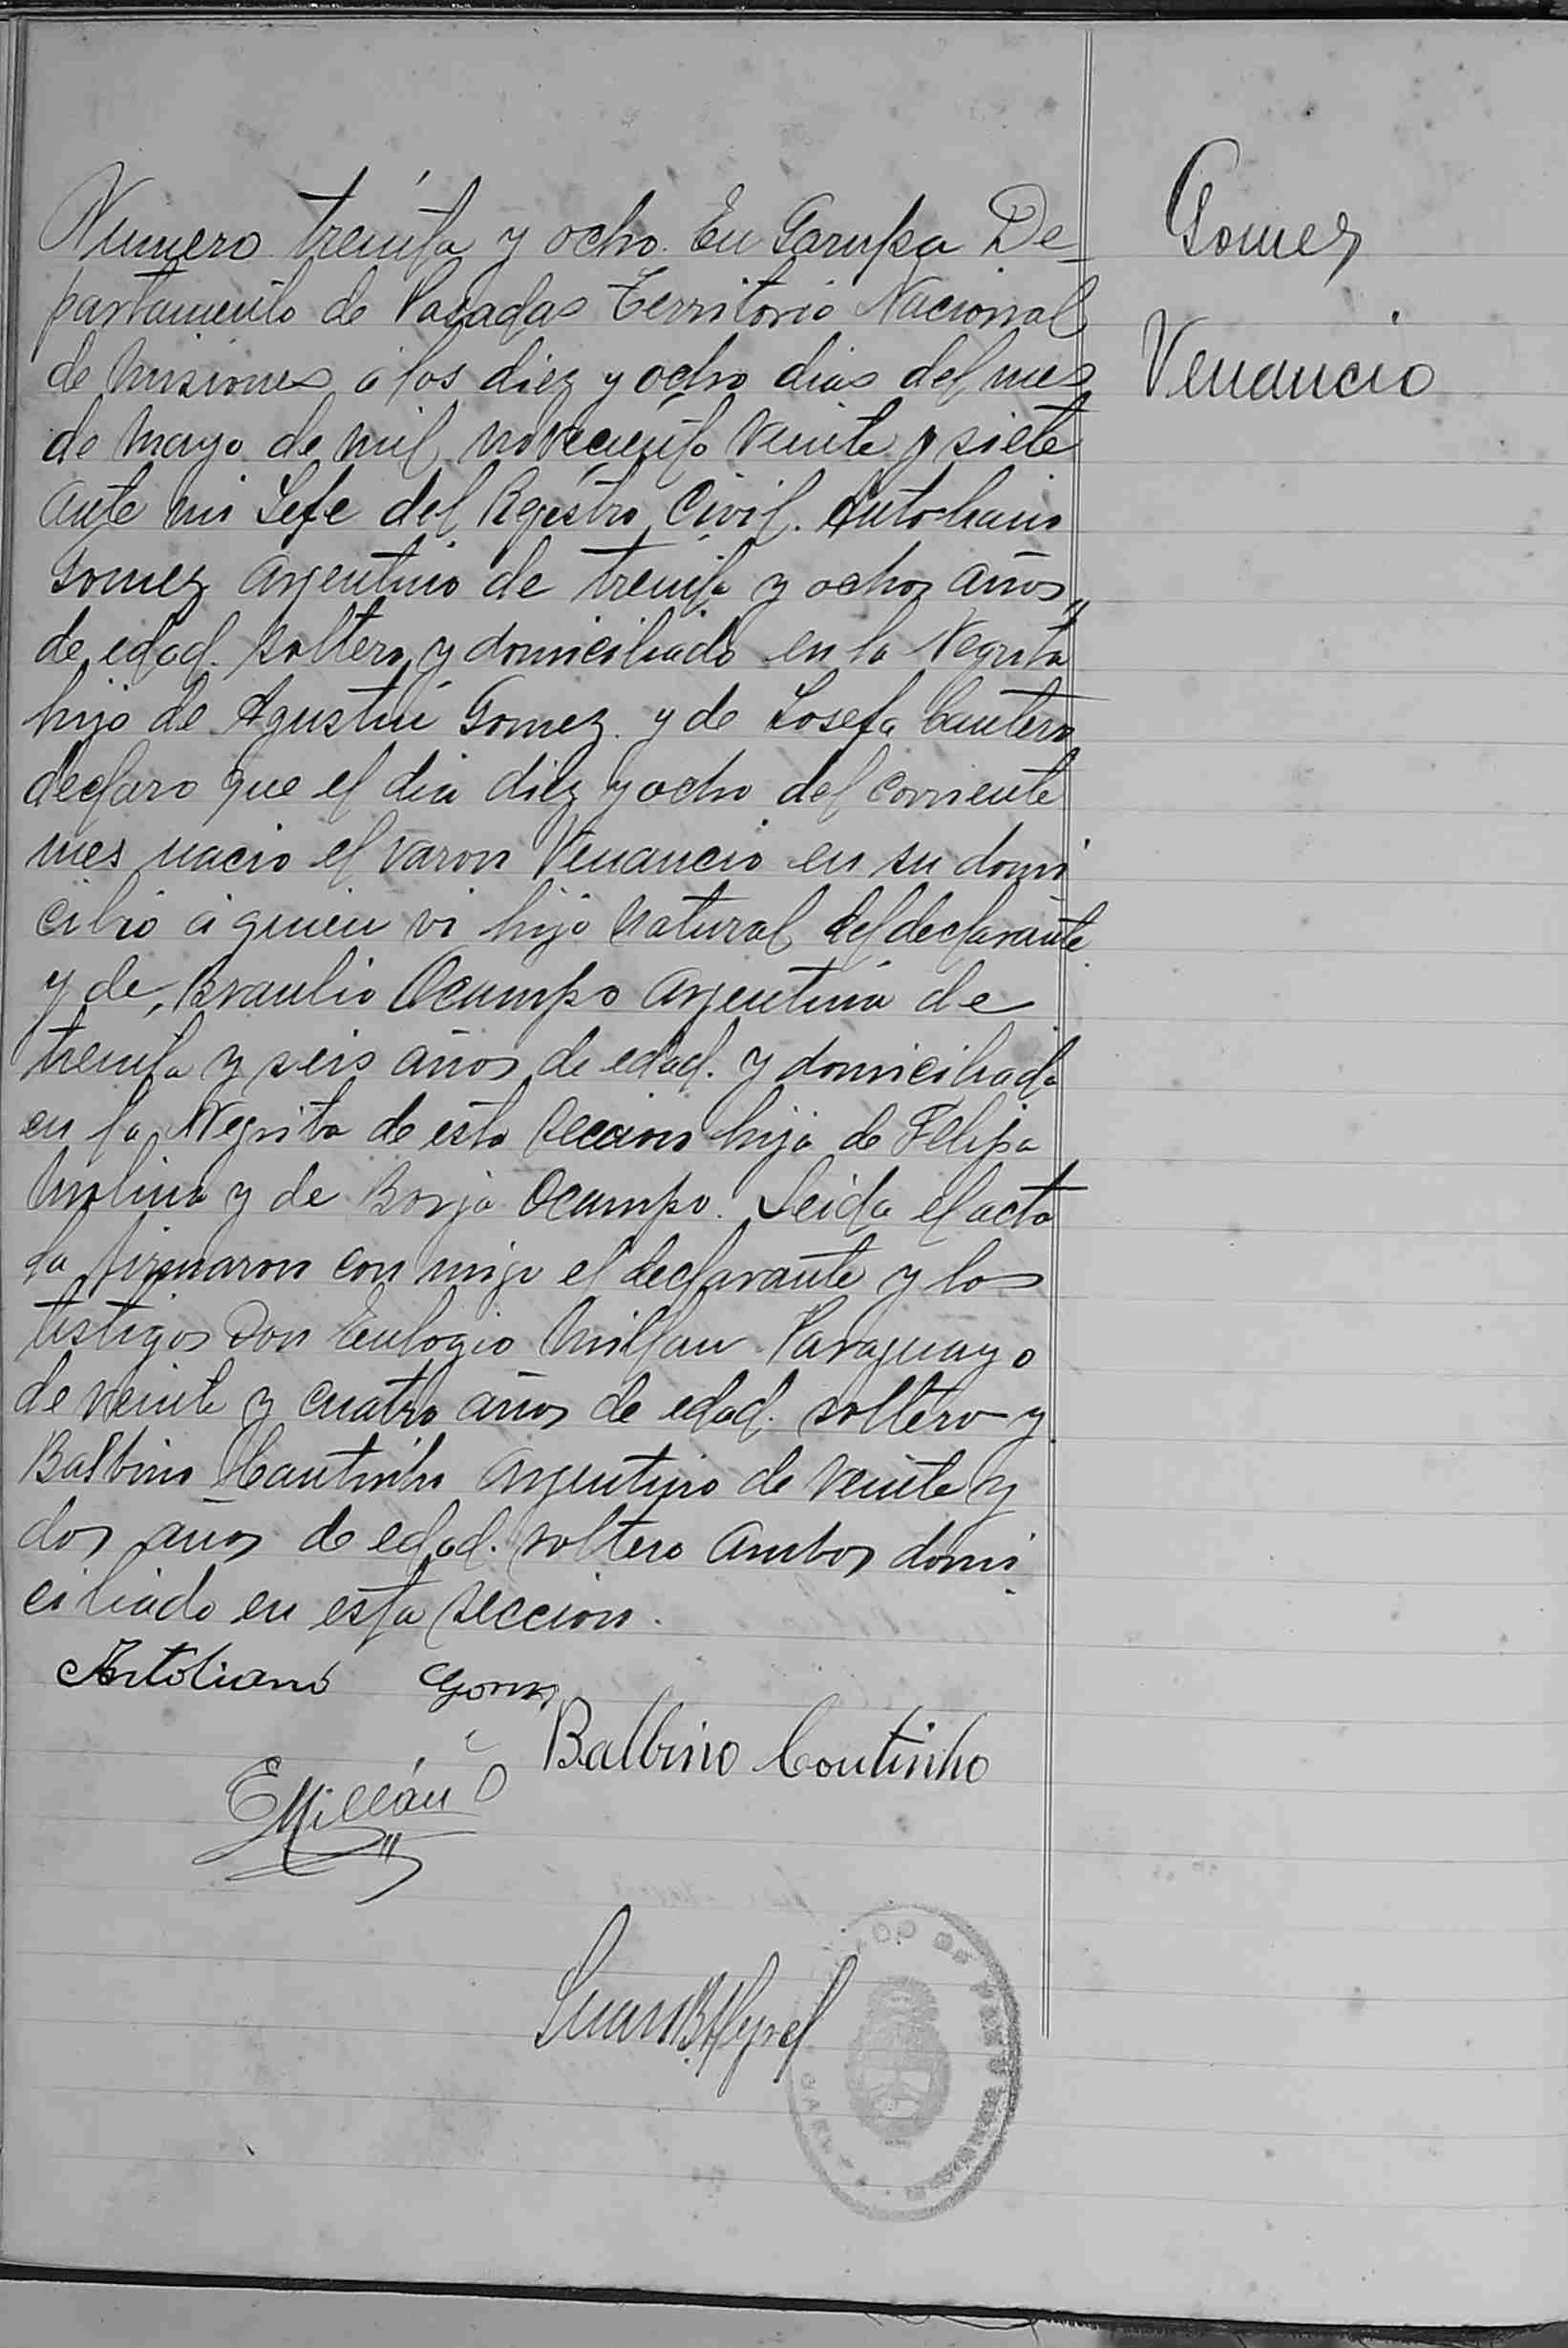 Gomez
Venancio
Numero treinta y ocho. En Garupa De-
partamento de Posadas Territorio Nacional
de Misiones á los diez y ocho dias del mes
de Mayo de mil noveciento veinte y siete
ante mi Jefe del Registro Civil. Antoliano
Gomez Argentino de treinta y ocho años
de edad. soltero y domiciliado en la Negrita
hijo de Agustin Gomez y de Josefa Cantero
declaro que el dia diez y ocho del corriente
mes nacio el varon Venancio en su domi
cilio á quien vi hijo natural del declarante
y de, Braulio Ocampo Argentina de
treinta y seis años de edad. y domiciliada
en la Negrita de esta seccion hija de Felipa
Molina y de Borja Ocampo. Leida el acta
la firmaron con migo el declarante y los
testigos Don Eulogio Millan Paraguayo
de veinte y cuatro años de edad. soltero y
Balbino Cautinho Argentino de veinte y
dos años de edad. soltero ambos domi
ciliado en esta seccion.
Antoliano Gomez
Balbino Coutinho
E Millán
Juan B.